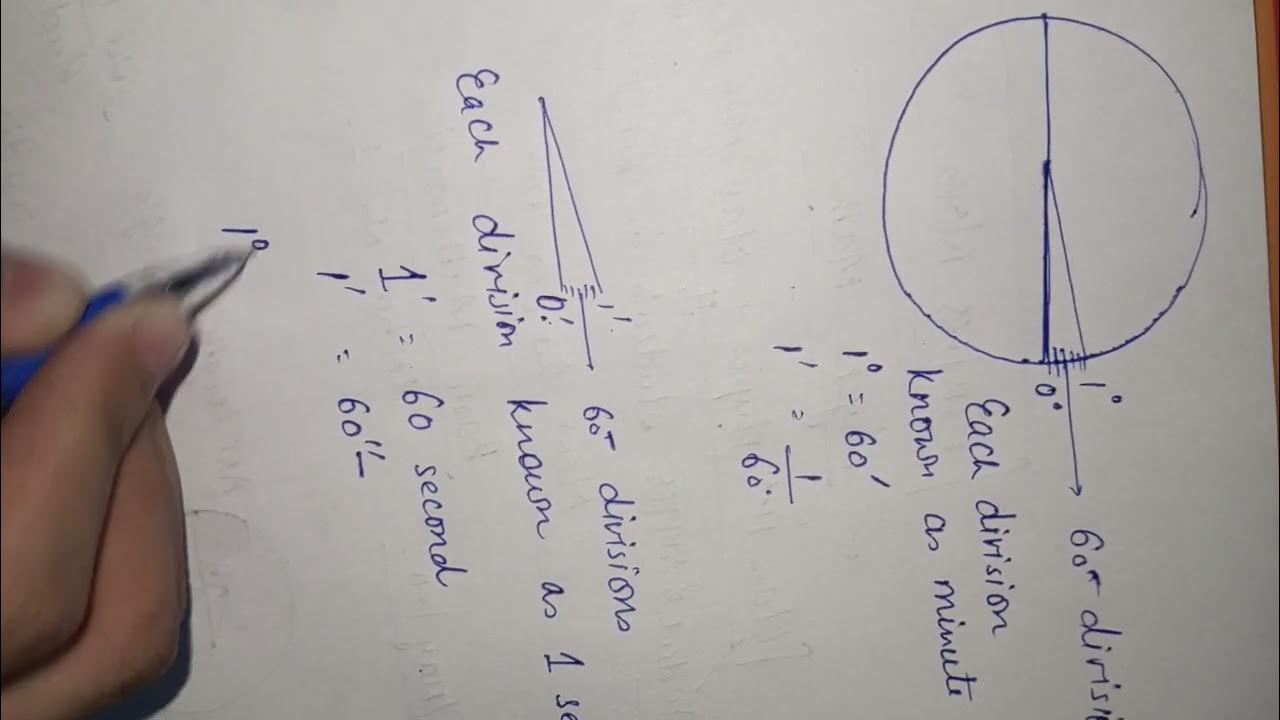 0° 1° → 60 divisi
Each division
known as minute
1° = 60'
1' = 1/60
0' 1' → 60 divisions
Each division known as 1 se
1' = 60 second
1' = 60''
1°